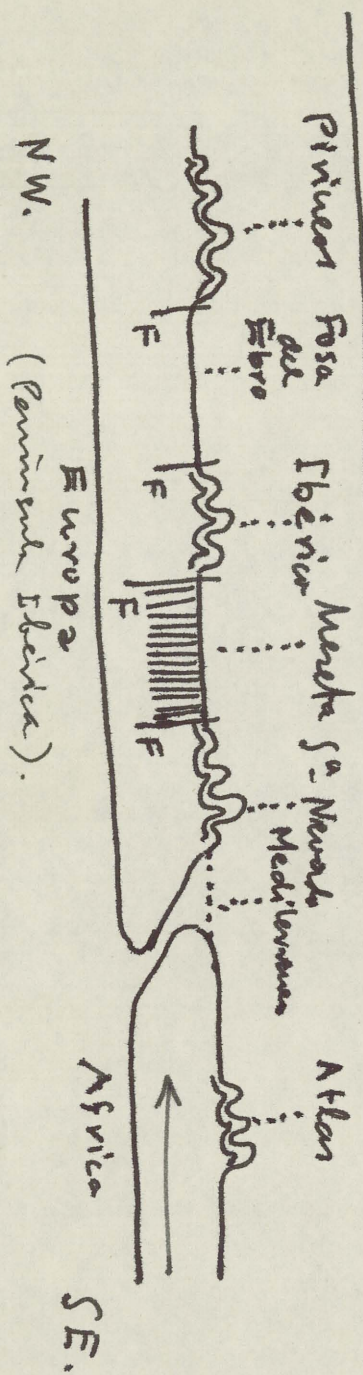 Pirineos
Fosa
del
Ebro
Ibérico
Meseta
Sª Nevada
Mediterraneo
Atlas
F
F
F
F
NW.
Europa
(Península Ibérica).
Africa
SE.